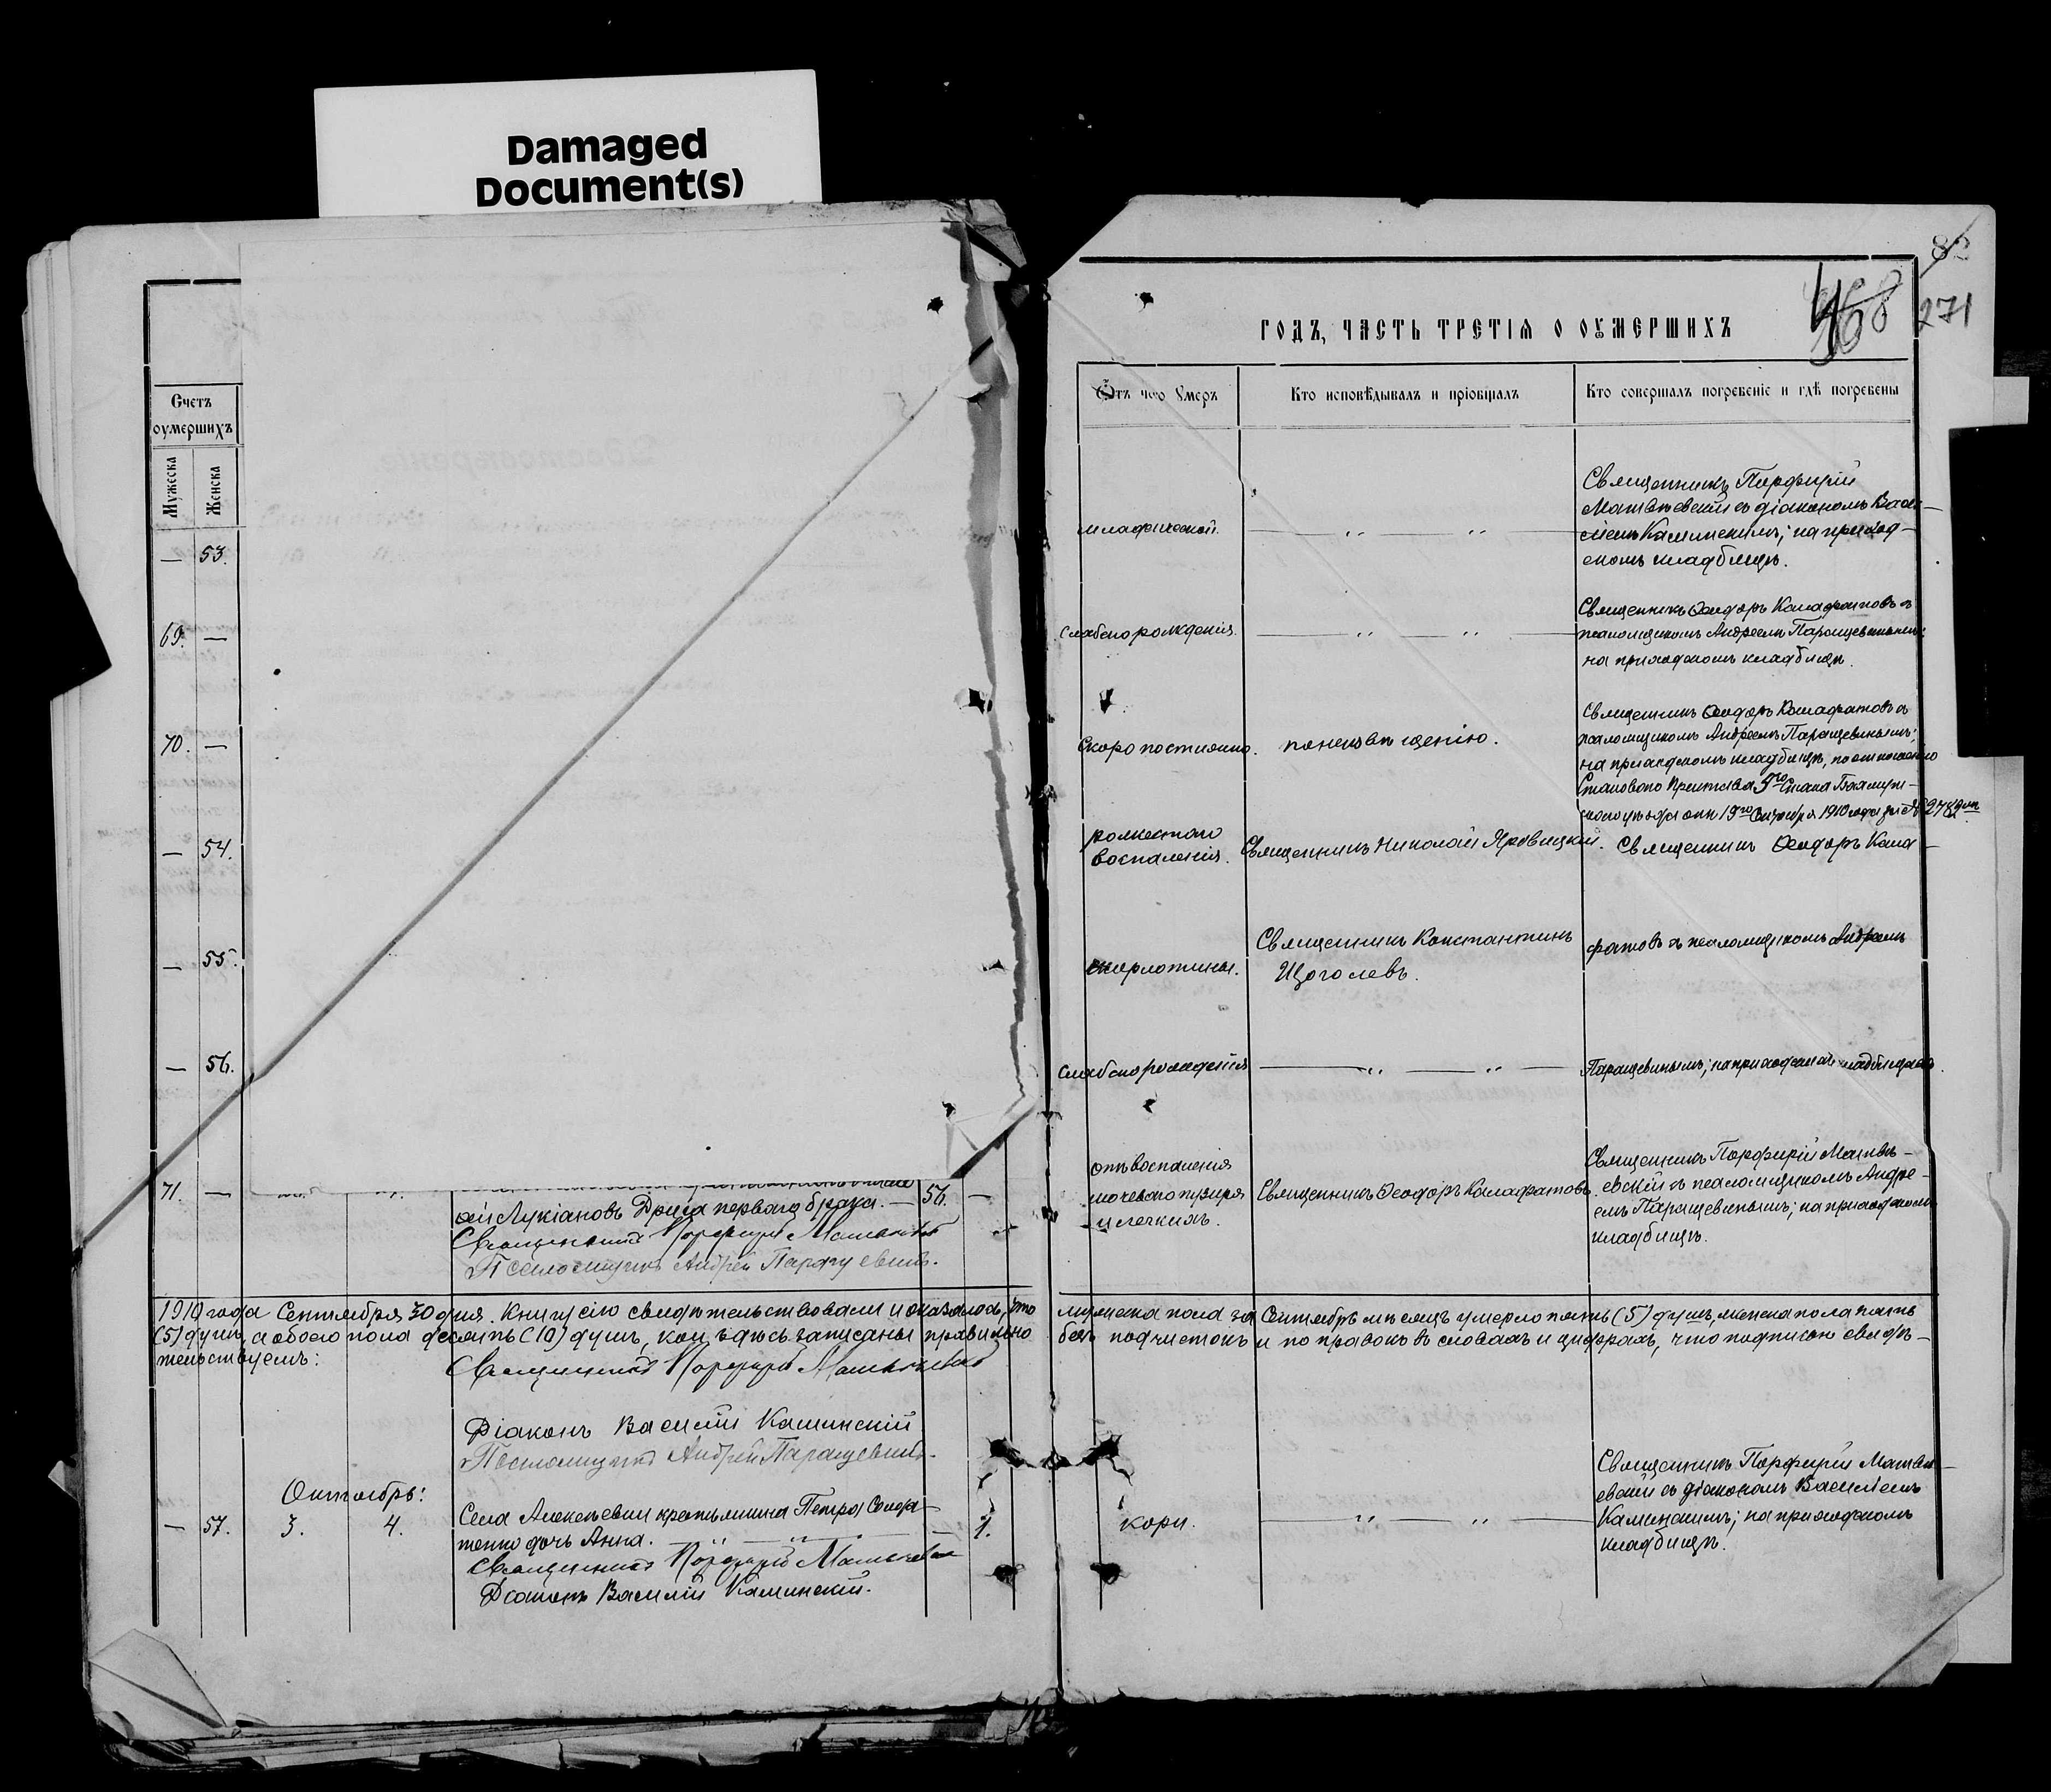 Damaged
Document(s)
82
468
271
Счетъ
оумершихъ
Мужеска
Женска
— 53.
69. —
70. —
— 54.
— 55.
— 56.
71. —
ай Лукіановъ Друга перваго брака. — 56. —
Священникъ Порфирій
Псаломщикъ Андрей Паращевинъ.
1910 года Сентября 30 дня. Книгу сію свидѣтельствовали и оказалось, что
(5) душъ, а обоего пола десять (10) душъ, кои здѣсь записаны правильно
тельствуемъ:
Священникъ Порфирій
Діаконъ Василій Каминскій
Псаломщикъ Андрей Паращевинъ.
Октябрь:
— 57. 3. 4. Села Алексѣевки крестьянина Петра
дочь Анна. — 1.
Священникъ Порфирій
Діаконъ Василій Каминскій.
ГОДЪ, ЧАСТЬ ТРЕТІЯ О ОУМЕРШИХЪ
Отъ чего Умеръ
Кто исповѣдывалъ и пріобщалъ
Кто совершалъ погребеніе и гдѣ погребены
младенческой.
Священникъ Порфирій
Матвѣевскій съ діакономъ Васи-
ліемъ Каминскимъ; на приход-
скомъ кладбищѣ.
слабаго рожденія.
Священникъ Ѳеодоръ Калафатовъ съ
псаломщикомъ Андреемъ Паращевинымъ:
на приходскомъ кладбищѣ.
Скоропостижно.
Священникъ Ѳеодоръ Калафатовъ съ
псаломщикомъ Андреемъ Паращевинымъ;
на приходскомъ кладбищѣ, по отношенію
Становаго Пристава 5го Стана
уѣзда отъ 19го Сентября 1910 года за №
рожистаго
воспаленія.
Священникъ Николай Яровицкій.
Священникъ Ѳеодоръ Кала-
скарлотины.
Священникъ Константинъ
Щоголевъ.
фатовъ съ псаломщикомъ Андреемъ
слабаго рожденія
Паращевинымъ; на приходскомъ кладбищѣ.
отъ воспаленія
мочеваго пузыря
и легкихъ.
Священникъ Ѳеодоръ Калафатовъ.
Священникъ Порфирій Матвѣ-
евскій съ псаломщикомъ Андре-
емъ Паращевинымъ; на приходскомъ
кладбищѣ.
мужеска пола за Сентябрь мѣсяцъ умерло пять (5) душъ, женска пола пять
безъ подчистокъ и поправокъ въ словахъ и цифрахъ, что подписью свидѣ-
кори.
Священникъ Порфирій Матвѣ-
евскій съ діакономъ Василіемъ
Каминскимъ; на приходскомъ
кладбищѣ.